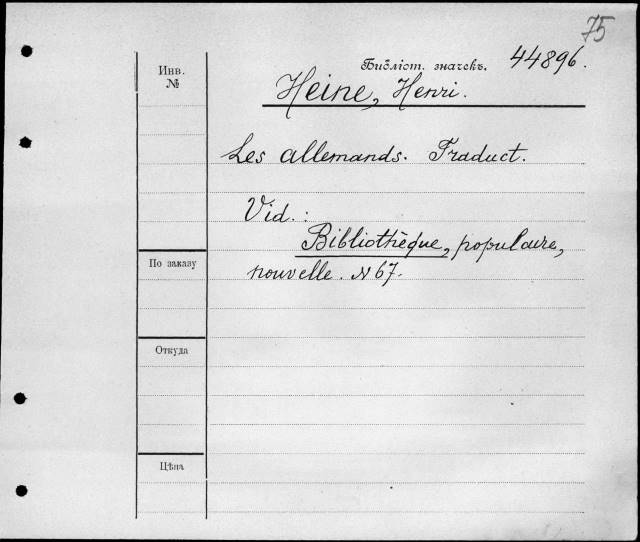 75
Инв.
№
Библіот. значекъ. 44896.
Heine, Henri.
Les allemands. Traduct.
Vid.:
Bibliothèque, populaire,
nouvelle. N 67.
По заказу
Откуда
Цѣна